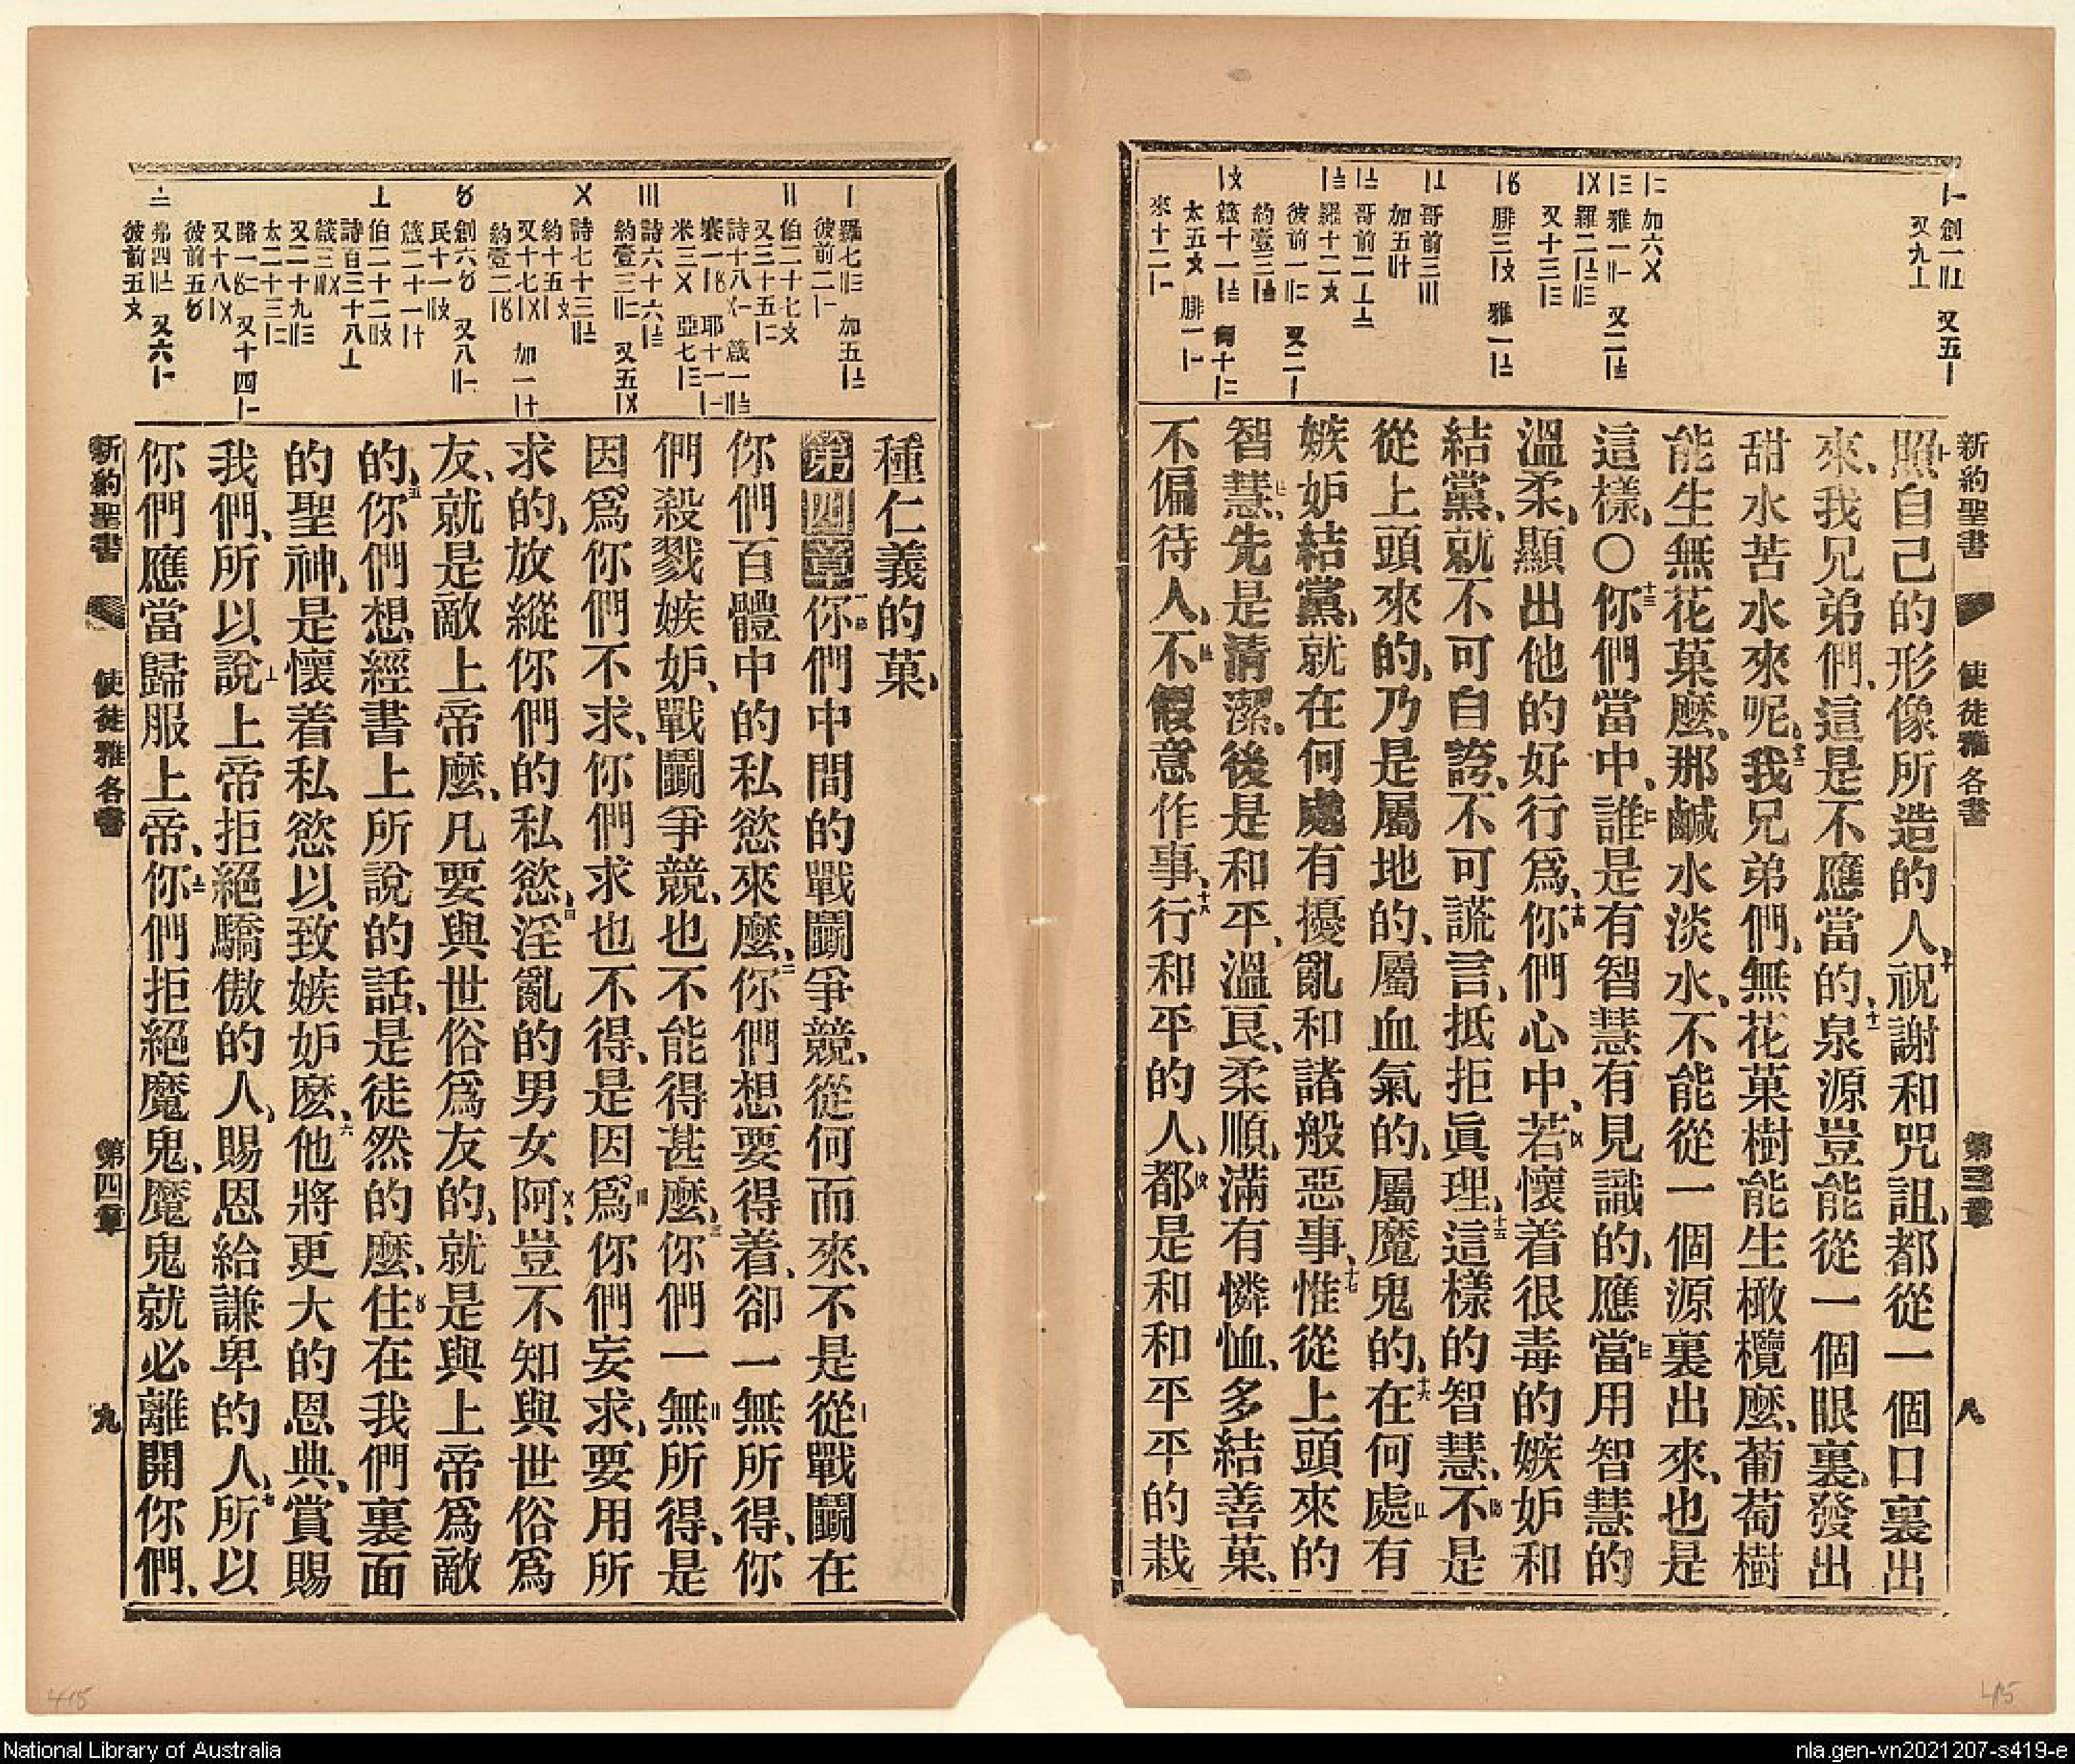 新約聖書 使徒雅各書 第三章 八
照自己的形像所造的人、十祝謝和咒詛、都從一個口裏出
來、我兄弟們、這是不應當的、十一泉源豈能從一個眼裏、發出
甜水苦水來呢、十二我兄弟們、無花菓樹能生橄欖麼、葡萄樹
能生無花菓麼、那鹹水淡水、不能從一個源裏出來、也是
這樣、〇十三你們當中、誰是有智慧有見識的、應當用智慧的
溫柔、顯出他的好行爲、十四你們心中、若懷着很毒的嫉妒和
結黨、就不可自誇、不可謊言、抵拒眞理、十五這樣的智慧、不是
從上頭來的、乃是屬地的、屬血氣的、屬魔鬼的、十六在何處有
嫉妒結黨、就在何處有擾亂和諸般惡事、十七惟從上頭來的
智慧、先是清潔、後是和平、溫良、柔順、滿有憐恤、多結善菓、
不偏待人、不假意作事、十八行和平的人、都是和和平平的栽
種仁義的菓、
第四章一你們中間的戰鬭爭競、從何而來、不是從戰鬭在
你們百體中的私慾來麼、二你們想要得着、卻一無所得、你
們殺戮嫉妒、戰鬭爭競、也不能得甚麼、三你們一無所得、是
因爲你們不求、你們求也不得、是因爲你們妄求、要用所
求的、放縱你們的私慾、四淫亂的男女阿、豈不知與世俗爲
友、就是敵上帝麼、凡要與世俗爲友的、就是與上帝爲敵
的、五你們想經書上所說的話、是徒然的麼、住在我們裏面
的聖神、是懷着私慾以致嫉妒麽、六他將更大的恩典、賞賜
我們、所以說上帝拒絕驕傲的人、賜恩給謙卑的人、七所以
你們應當歸服上帝、你們拒絕魔鬼、魔鬼就必離開你們、
新約聖書 使徒雅各書 第四章 九
415
415
National Library of Australia
nla.gen-vn2021207-s419-e